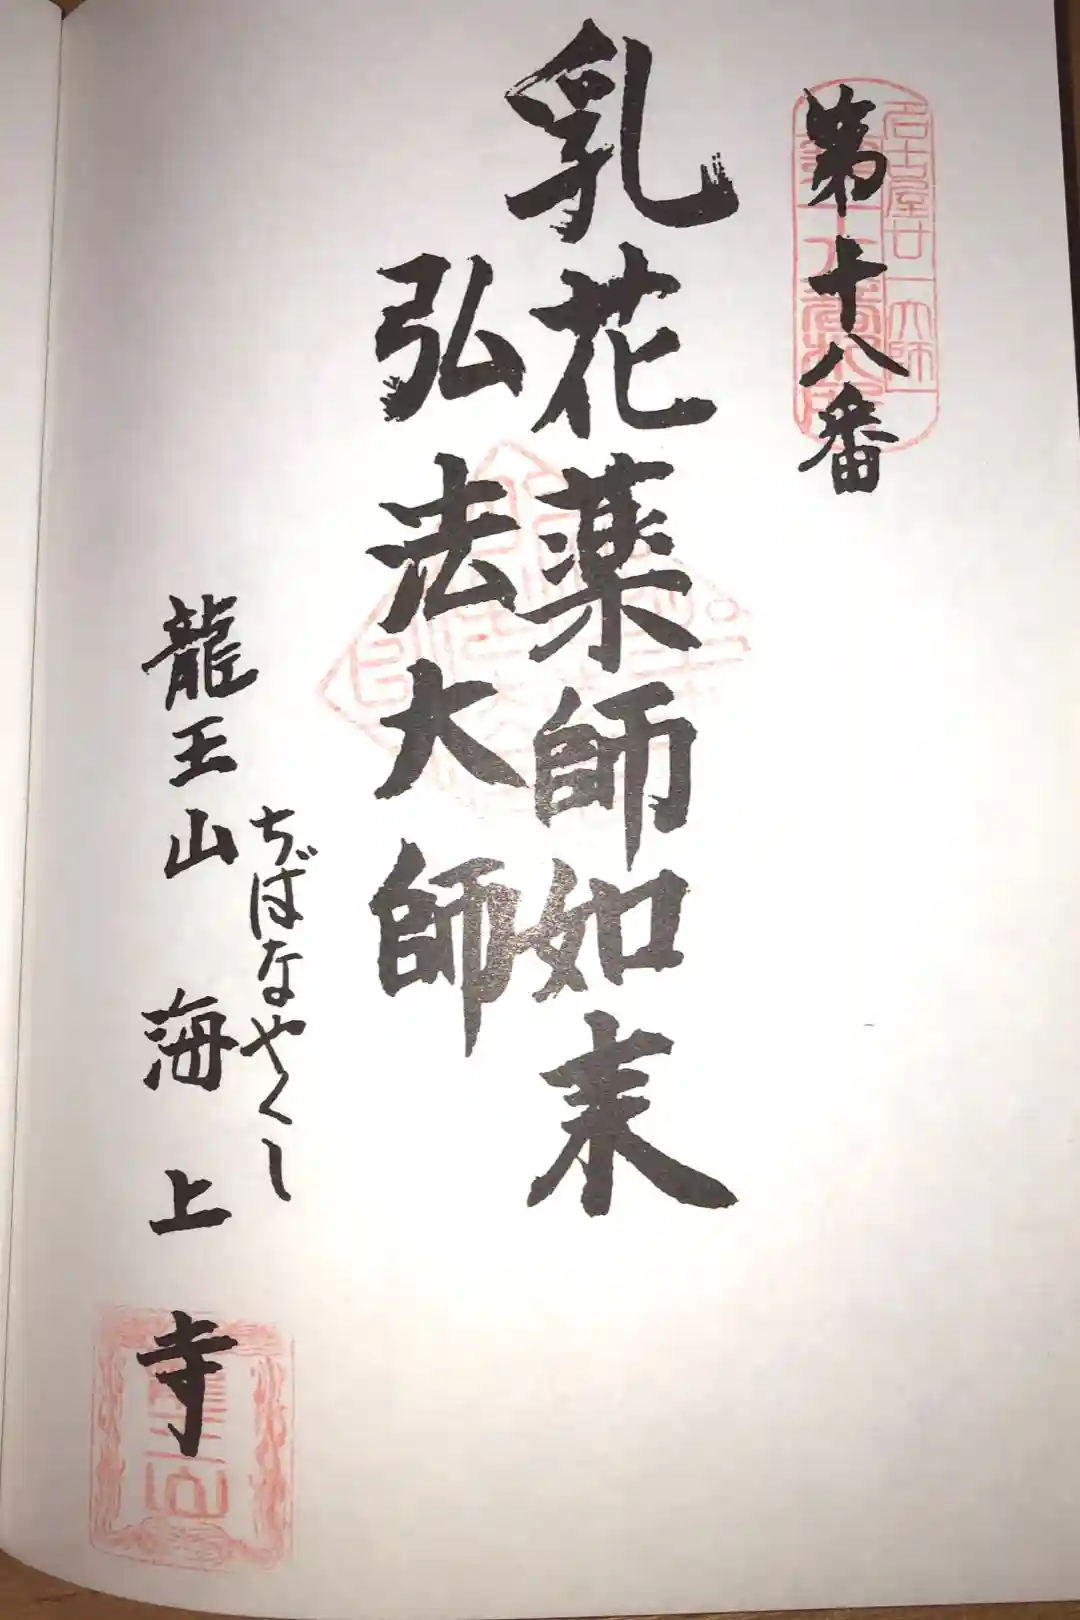 名古屋廿一大師
第十八番
乳花薬師如来
弘法大師
ぢばなやくし
龍王山 海上寺